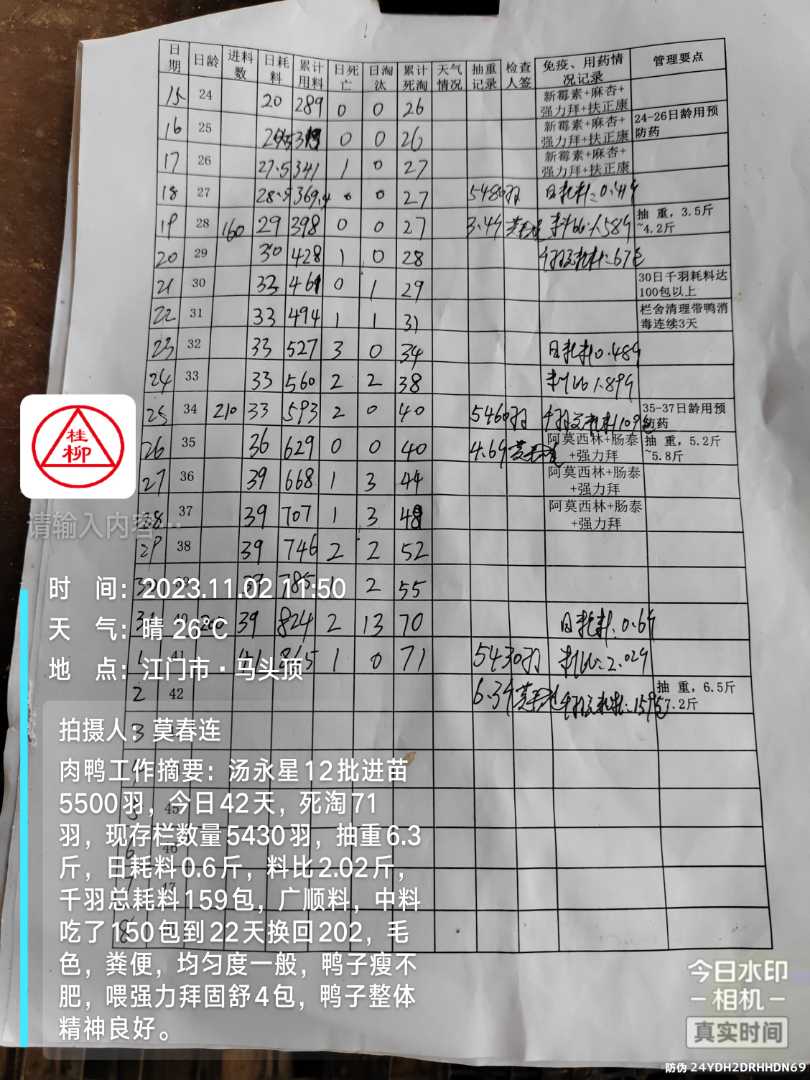 日期 日龄 进料数 日耗料 累计用料 日死亡 日淘汰 累计死淘 天气情况 抽重记录 检查人签 免疫、用药情况记录 管理要点
15 24 20 289 0 0 26 新霉素+麻杏+强力拜+扶正康
16 25 0 0 26 新霉素+麻杏+强力拜+扶正康 24-26日龄用预防药
17 26 27.5 341 1 0 27 新霉素+麻杏+强力拜+扶正康
18 27 28.5 369.4 0 27 5480羽
19 28 160 29 398 0 0 27 抽重，3.5斤~4.2斤
20 29 30 428 1 0 28
21 30 33 461 0 1 29 30日千羽耗料达100包以上
22 31 33 494 1 1 31 栏舍清理带鸭消毒连续3天
23 32 33 527 3 0 34 日耗料0.48斤
24 33 33 560 2 2 38 料比1.89斤
25 34 210 33 593 2 0 40 5460羽 35-37日龄用预防药
26 35 36 629 0 0 40 阿莫西林+肠泰+强力拜 抽重，5.2斤~5.8斤
27 36 39 668 1 3 44 阿莫西林+肠泰+强力拜
28 37 39 707 1 3 48 阿莫西林+肠泰+强力拜
29 38 39 746 2 2 52
785 2 55
39 824 2 13 70 日耗料:0.6斤
1 41 865 1 0 71 5430羽 料比:2.02斤
2 42 抽重，6.5斤
桂
柳
请输入内容…
时 间：2023.11.02 11:50
天 气：晴 26℃
地 点：江门市·马头顶
拍摄人：莫春连
肉鸭工作摘要：汤永星12批进苗
5500羽，今日42天，死淘71
羽，现存栏数量5430羽，抽重6.3
斤，日耗料0.6斤，料比2.02斤，
千羽总耗料159包，广顺料，中料
吃了150包到22天换回202，毛
色，粪便，均匀度一般，鸭子瘦不
肥，喂强力拜固舒4包，鸭子整体
精神良好。
今日水印
相机
真实时间
防伪 24YDH2DRHHDN69